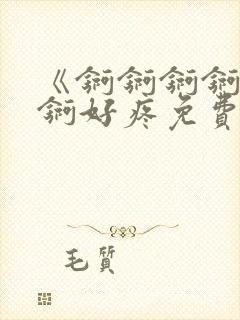 《锕锕锕锕
锕好疼免費
毛質